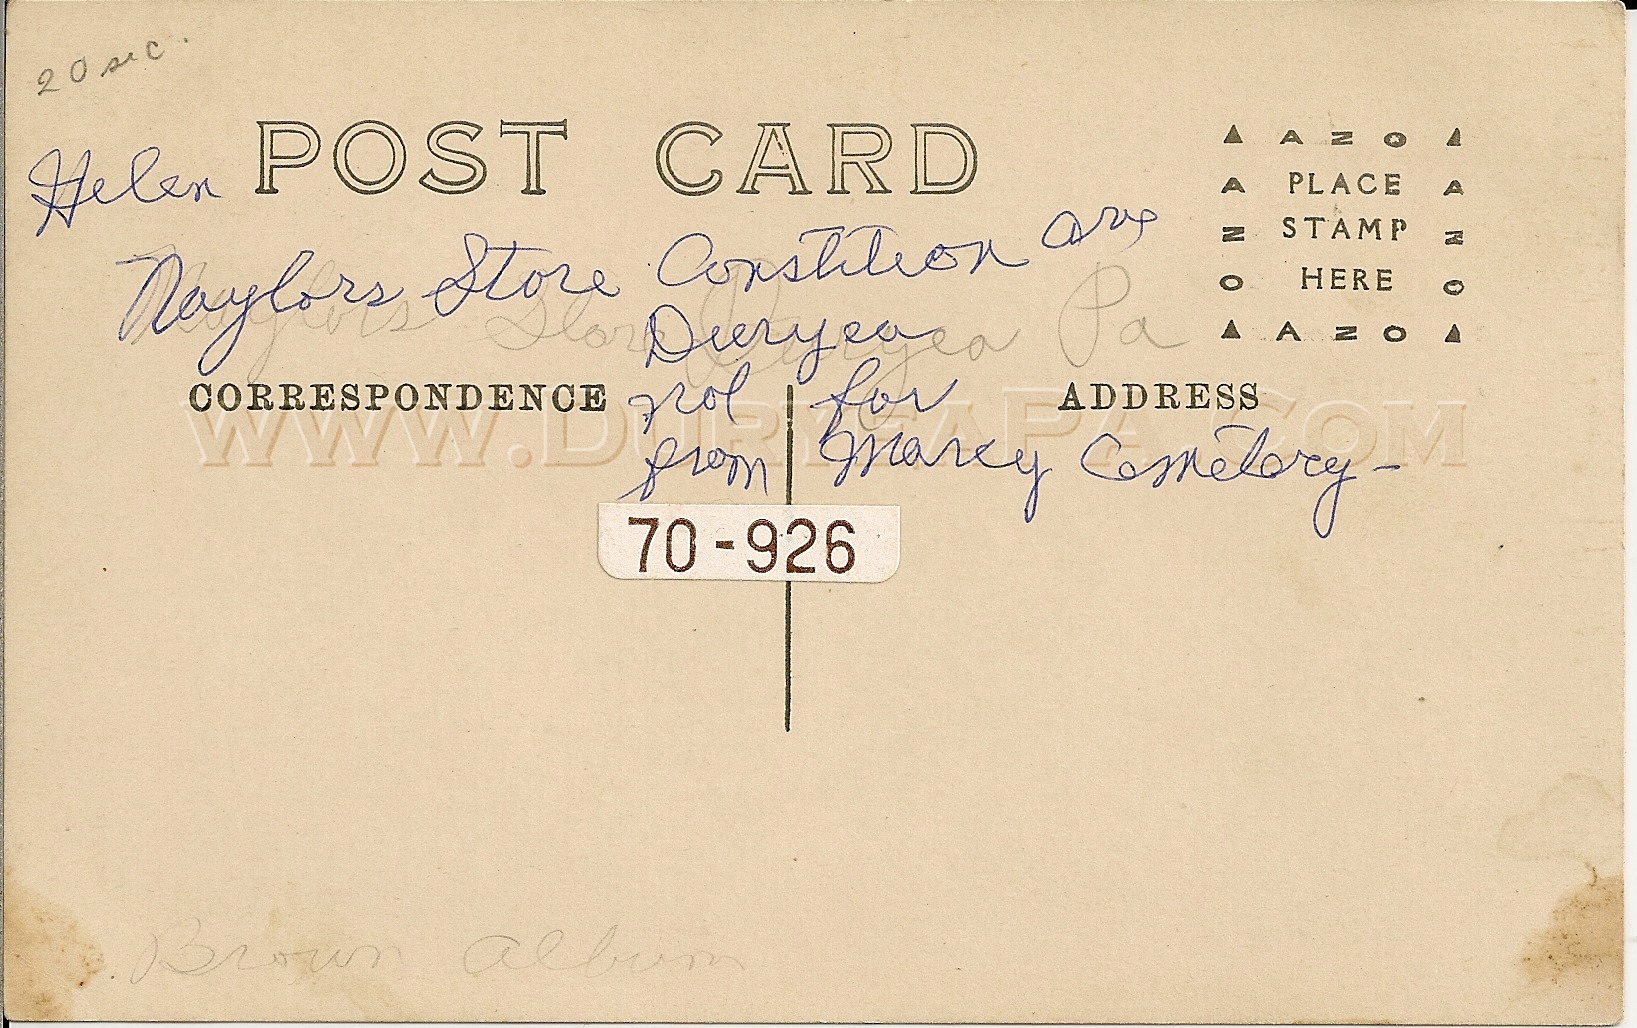 20 sec.
POST CARD
Helen
Naylors Store Constition ave
Naylors Store Duryea Pa
Duryea
not for
from Marcy Cemetery -
AZO
PLACE
STAMP
HERE
AZO
AZO
AZO
CORRESPONDENCE
ADDRESS
WWW.DURYEAPA.COM
70-926
Brown Album